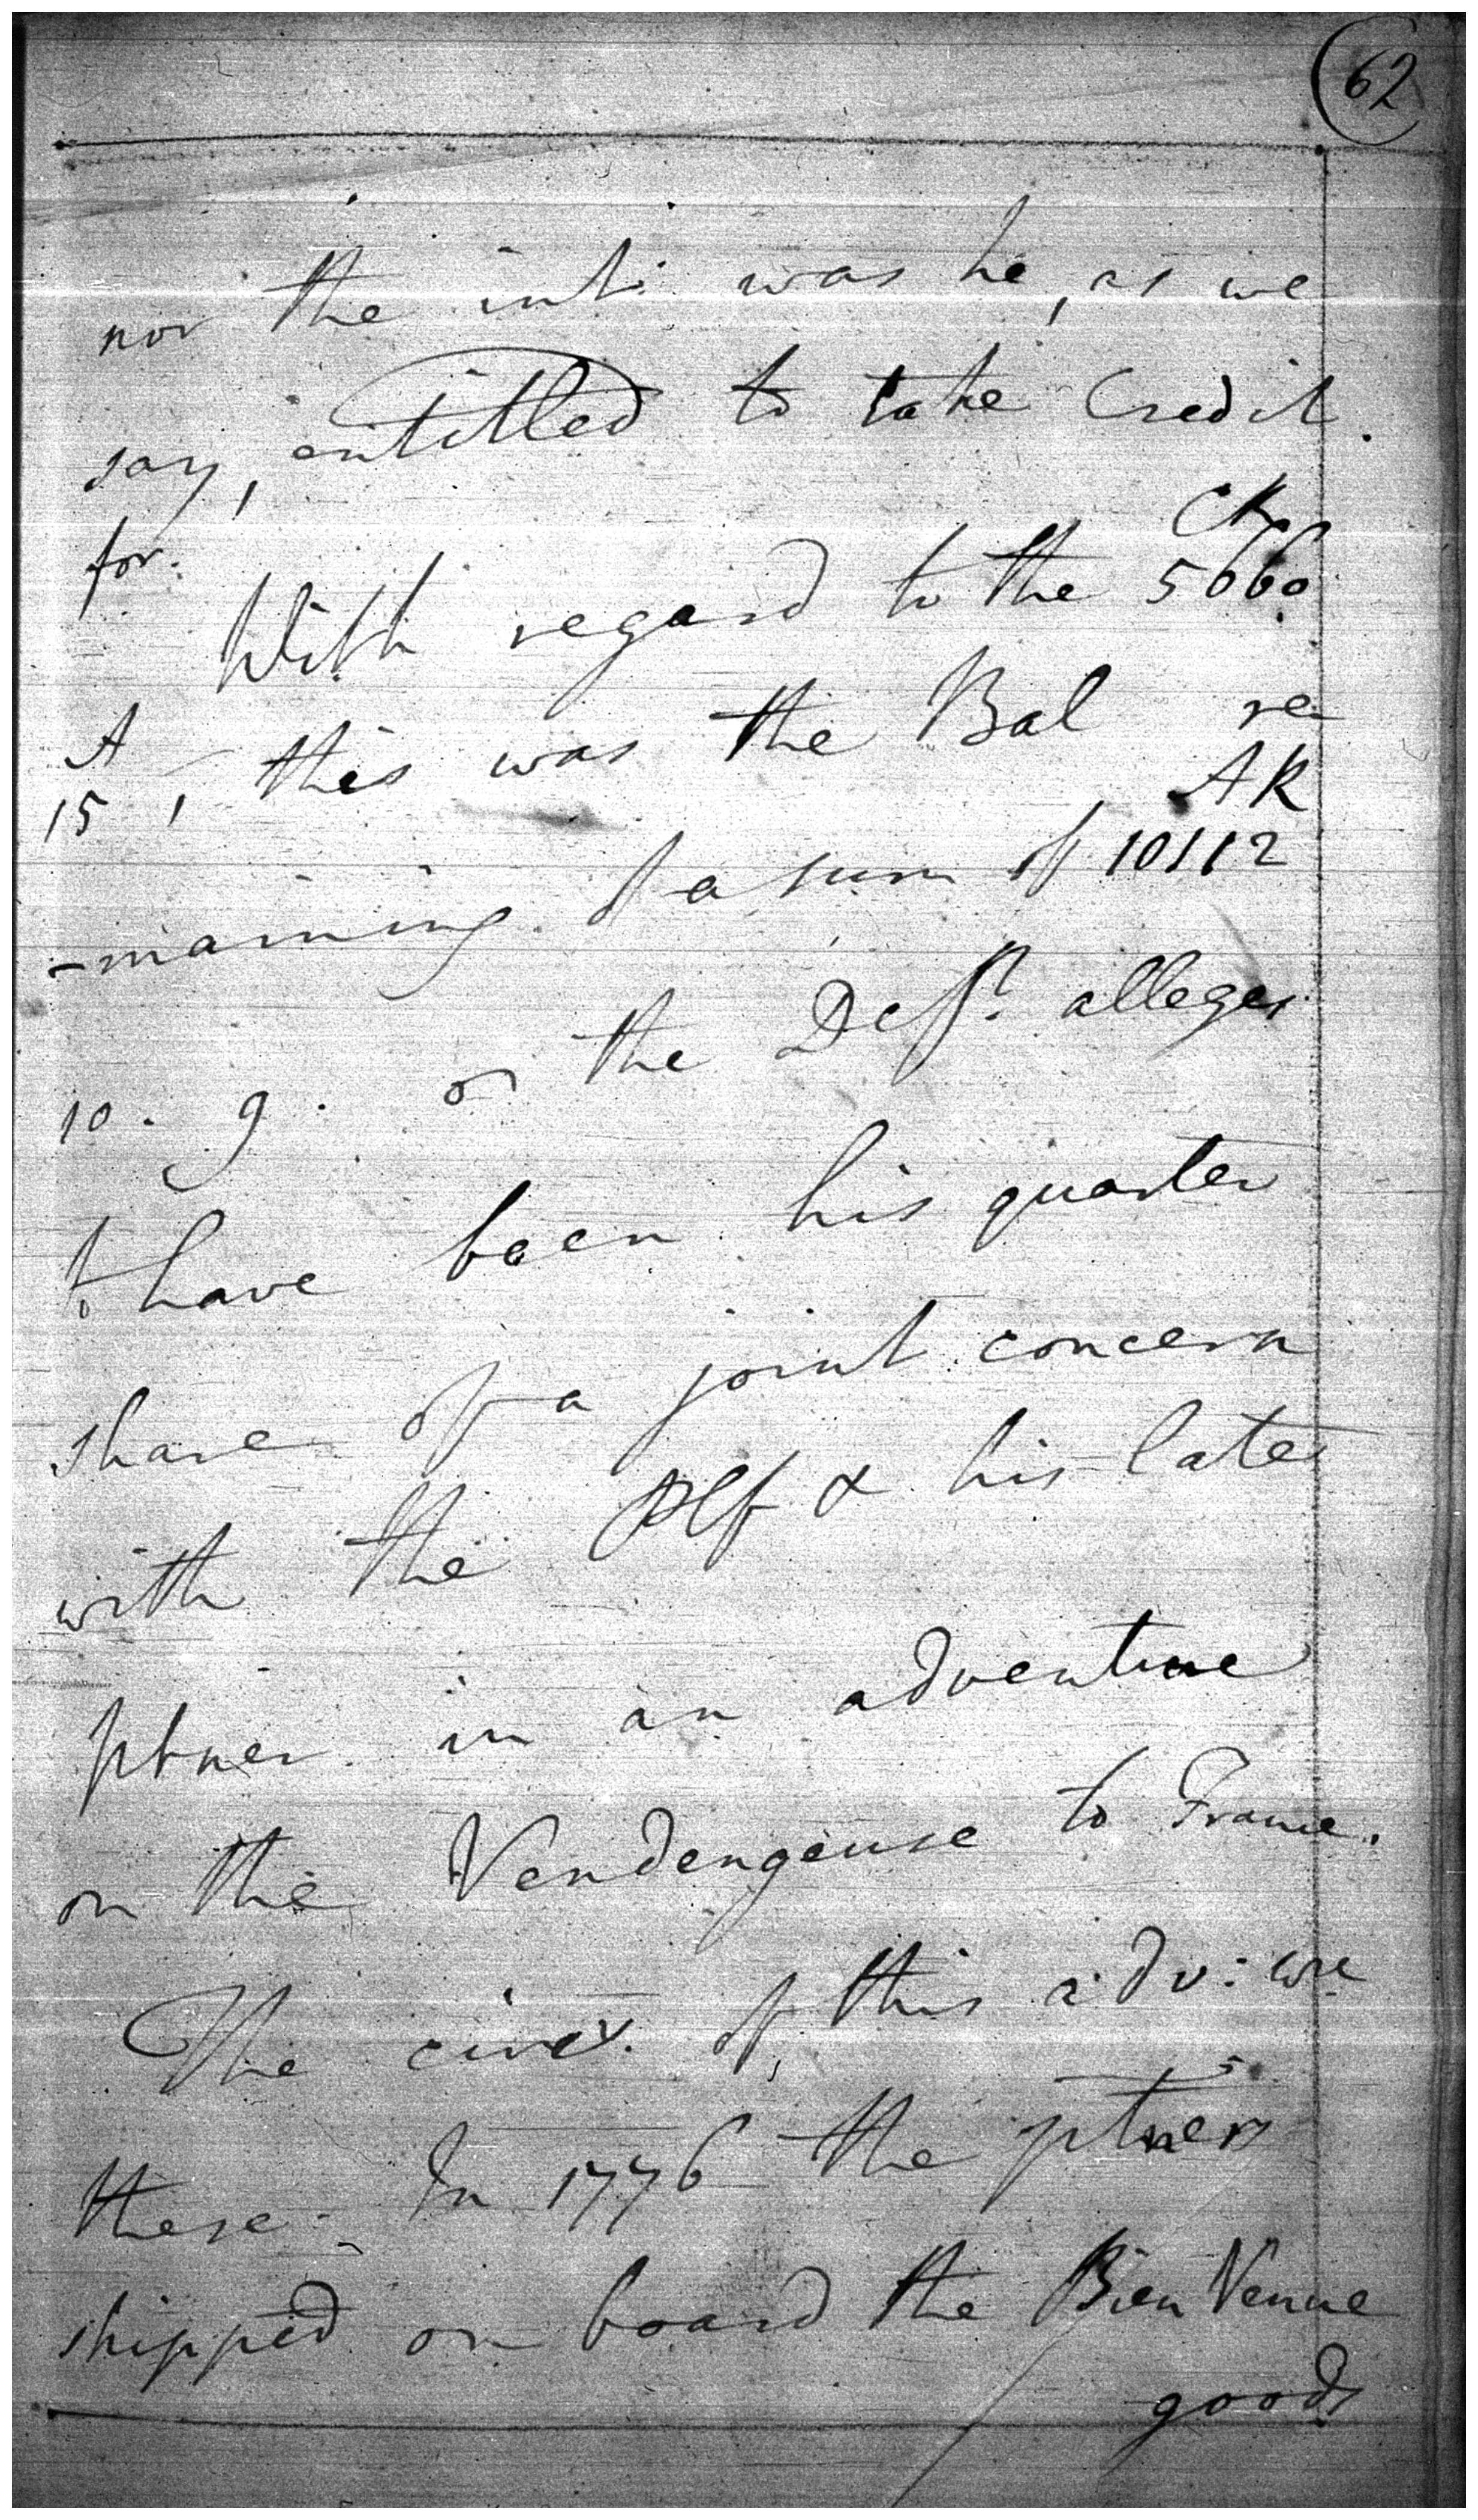 62
nor the int: was he, as we
say, entitled to take Credit
for.
CRs
With regard to the 5060
A
15, this was the Bal re
AR
-maining of a sum of 10112
10. 9. the Deft. alleges
to have been his quarter
share of a joint concern
with the Plf & his late
ptner in an adventure
on the Vendengeuse to France.
The circs. of this adv: wre
these. In 1776 the ptners
shipped on board the Bien Venue
goods